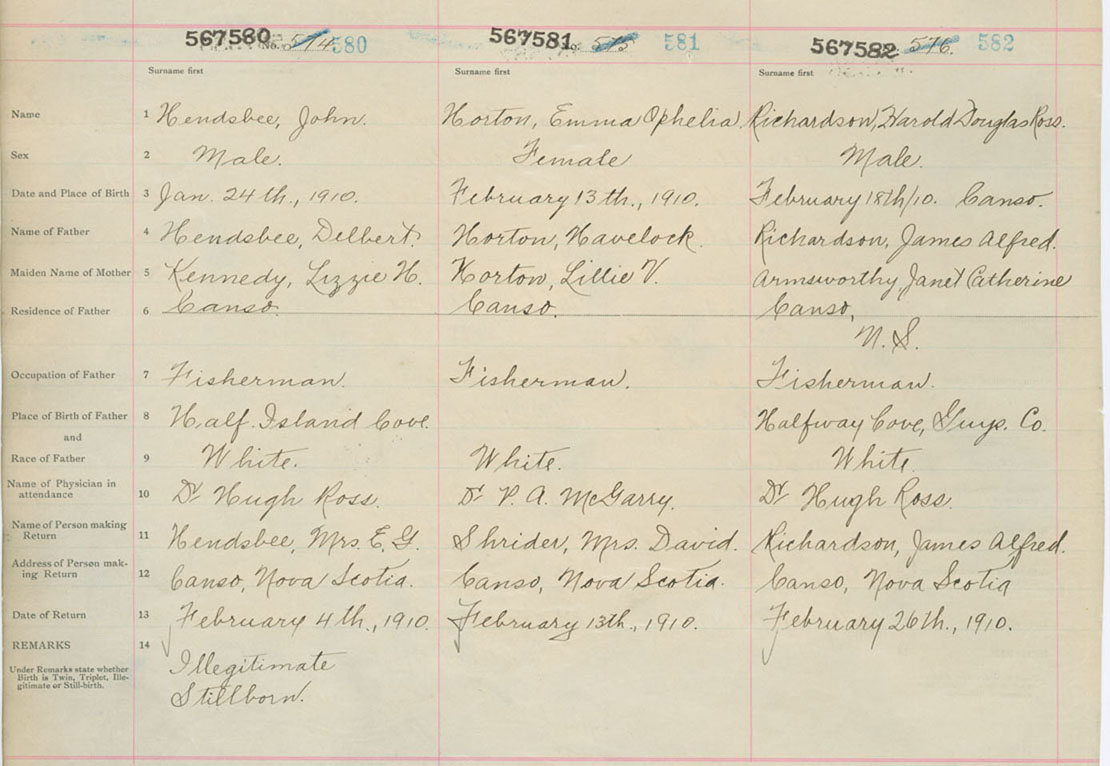 567580 No. 574 580 567581 No. 575 581 567582 576. 582
Surname first Surname first Surname first
Name 1 Hendsbee, John. Horton, Emma Ophelia. Richardson, Harold Douglas Ross.
Sex 2 Male. Female Male.
Date and Place of Birth 3 Jan. 24th., 1910. February 13th., 1910. February 18th/10. Canso.
Name of Father 4 Hendsbee, Delbert. Horton, Havelock. Richardson, James Alfred.
Maiden Name of Mother 5 Kennedy, Lizzie H. Horton, Lillie V. Armsworthy, Janet Catherine
Residence of Father 6 Canso. Canso. Canso,
N. S.
Occupation of Father 7 Fisherman. Fisherman. Fisherman.
Place of Birth of Father 8 Half Island Cove. Halfway Cove, Guys. Co.
and
Race of Father 9 White. White. White.
Name of Physician in
attendance 10 Dr Hugh Ross. Dr P. A. McGarry. Dr Hugh Ross.
Name of Person making
Return 11 Hendsbee, Mrs. E. G. Shrider, Mrs. David. Richardson, James Alfred.
Address of Person mak-
ing Return 12 Canso, Nova Scotia. Canso, Nova Scotia. Canso, Nova Scotia
Date of Return 13 February 4th., 1910. February 13th., 1910. February 26th., 1910.
REMARKS 14
Under Remarks state whether
Birth is Twin, Triplet, Ille-
gitimate or Still-birth.
Illegitimate
Stillborn.